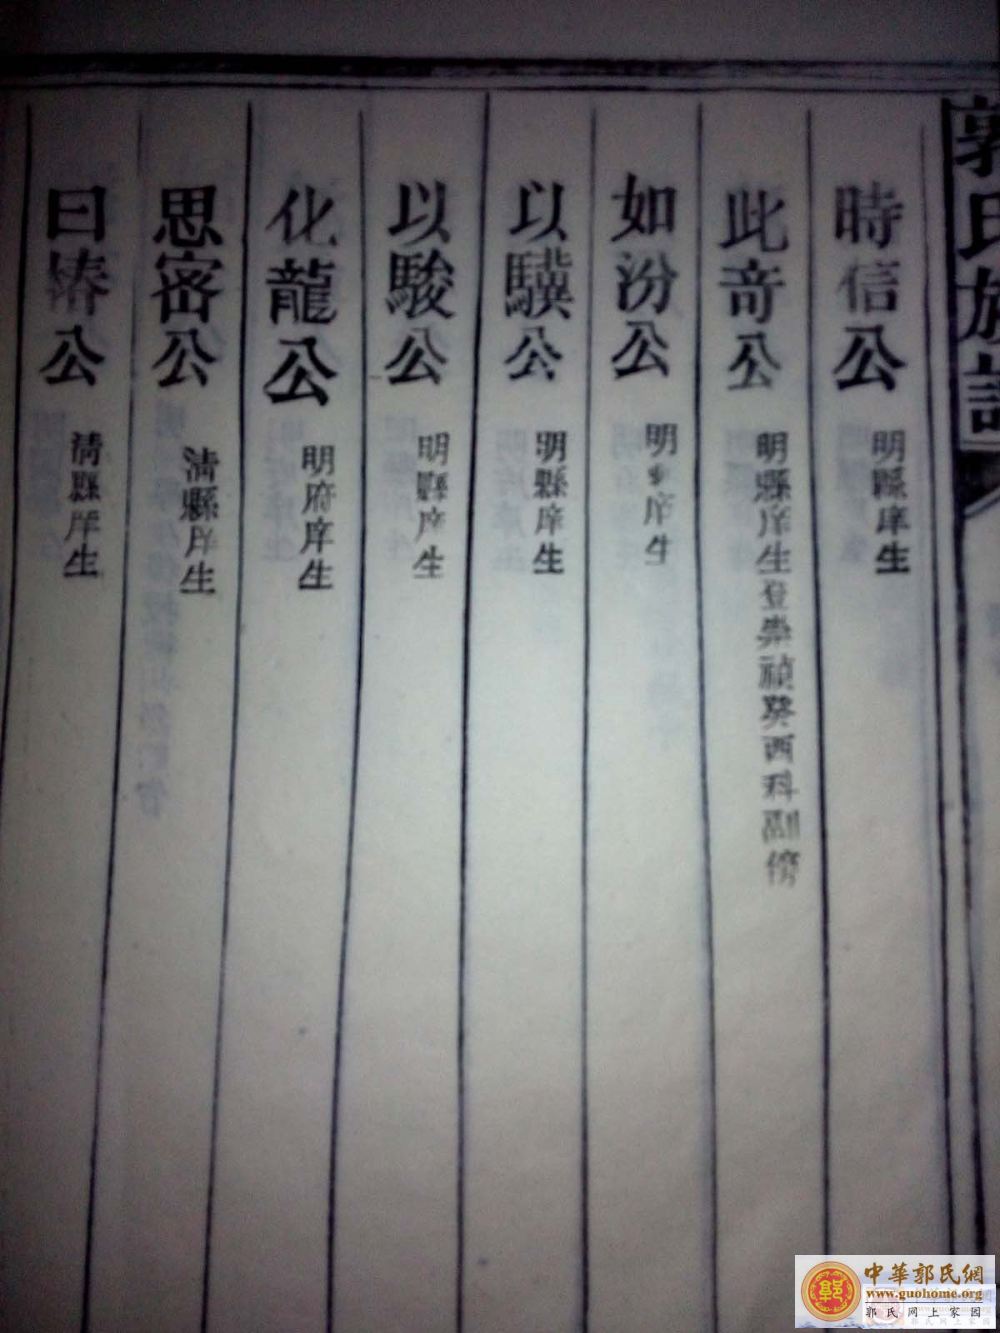 郭氏族譜
時信公 明縣庠生
此奇公 明縣庠生登崇禎癸酉科副榜
如汾公 明 庠生
以驥公 明縣庠生
以駿公 明縣庠生
化龍公 明府庠生
思密公 清縣庠生
曰椿公 清縣庠生
中華郭氏網
www.guohome.org
郭氏网上家园